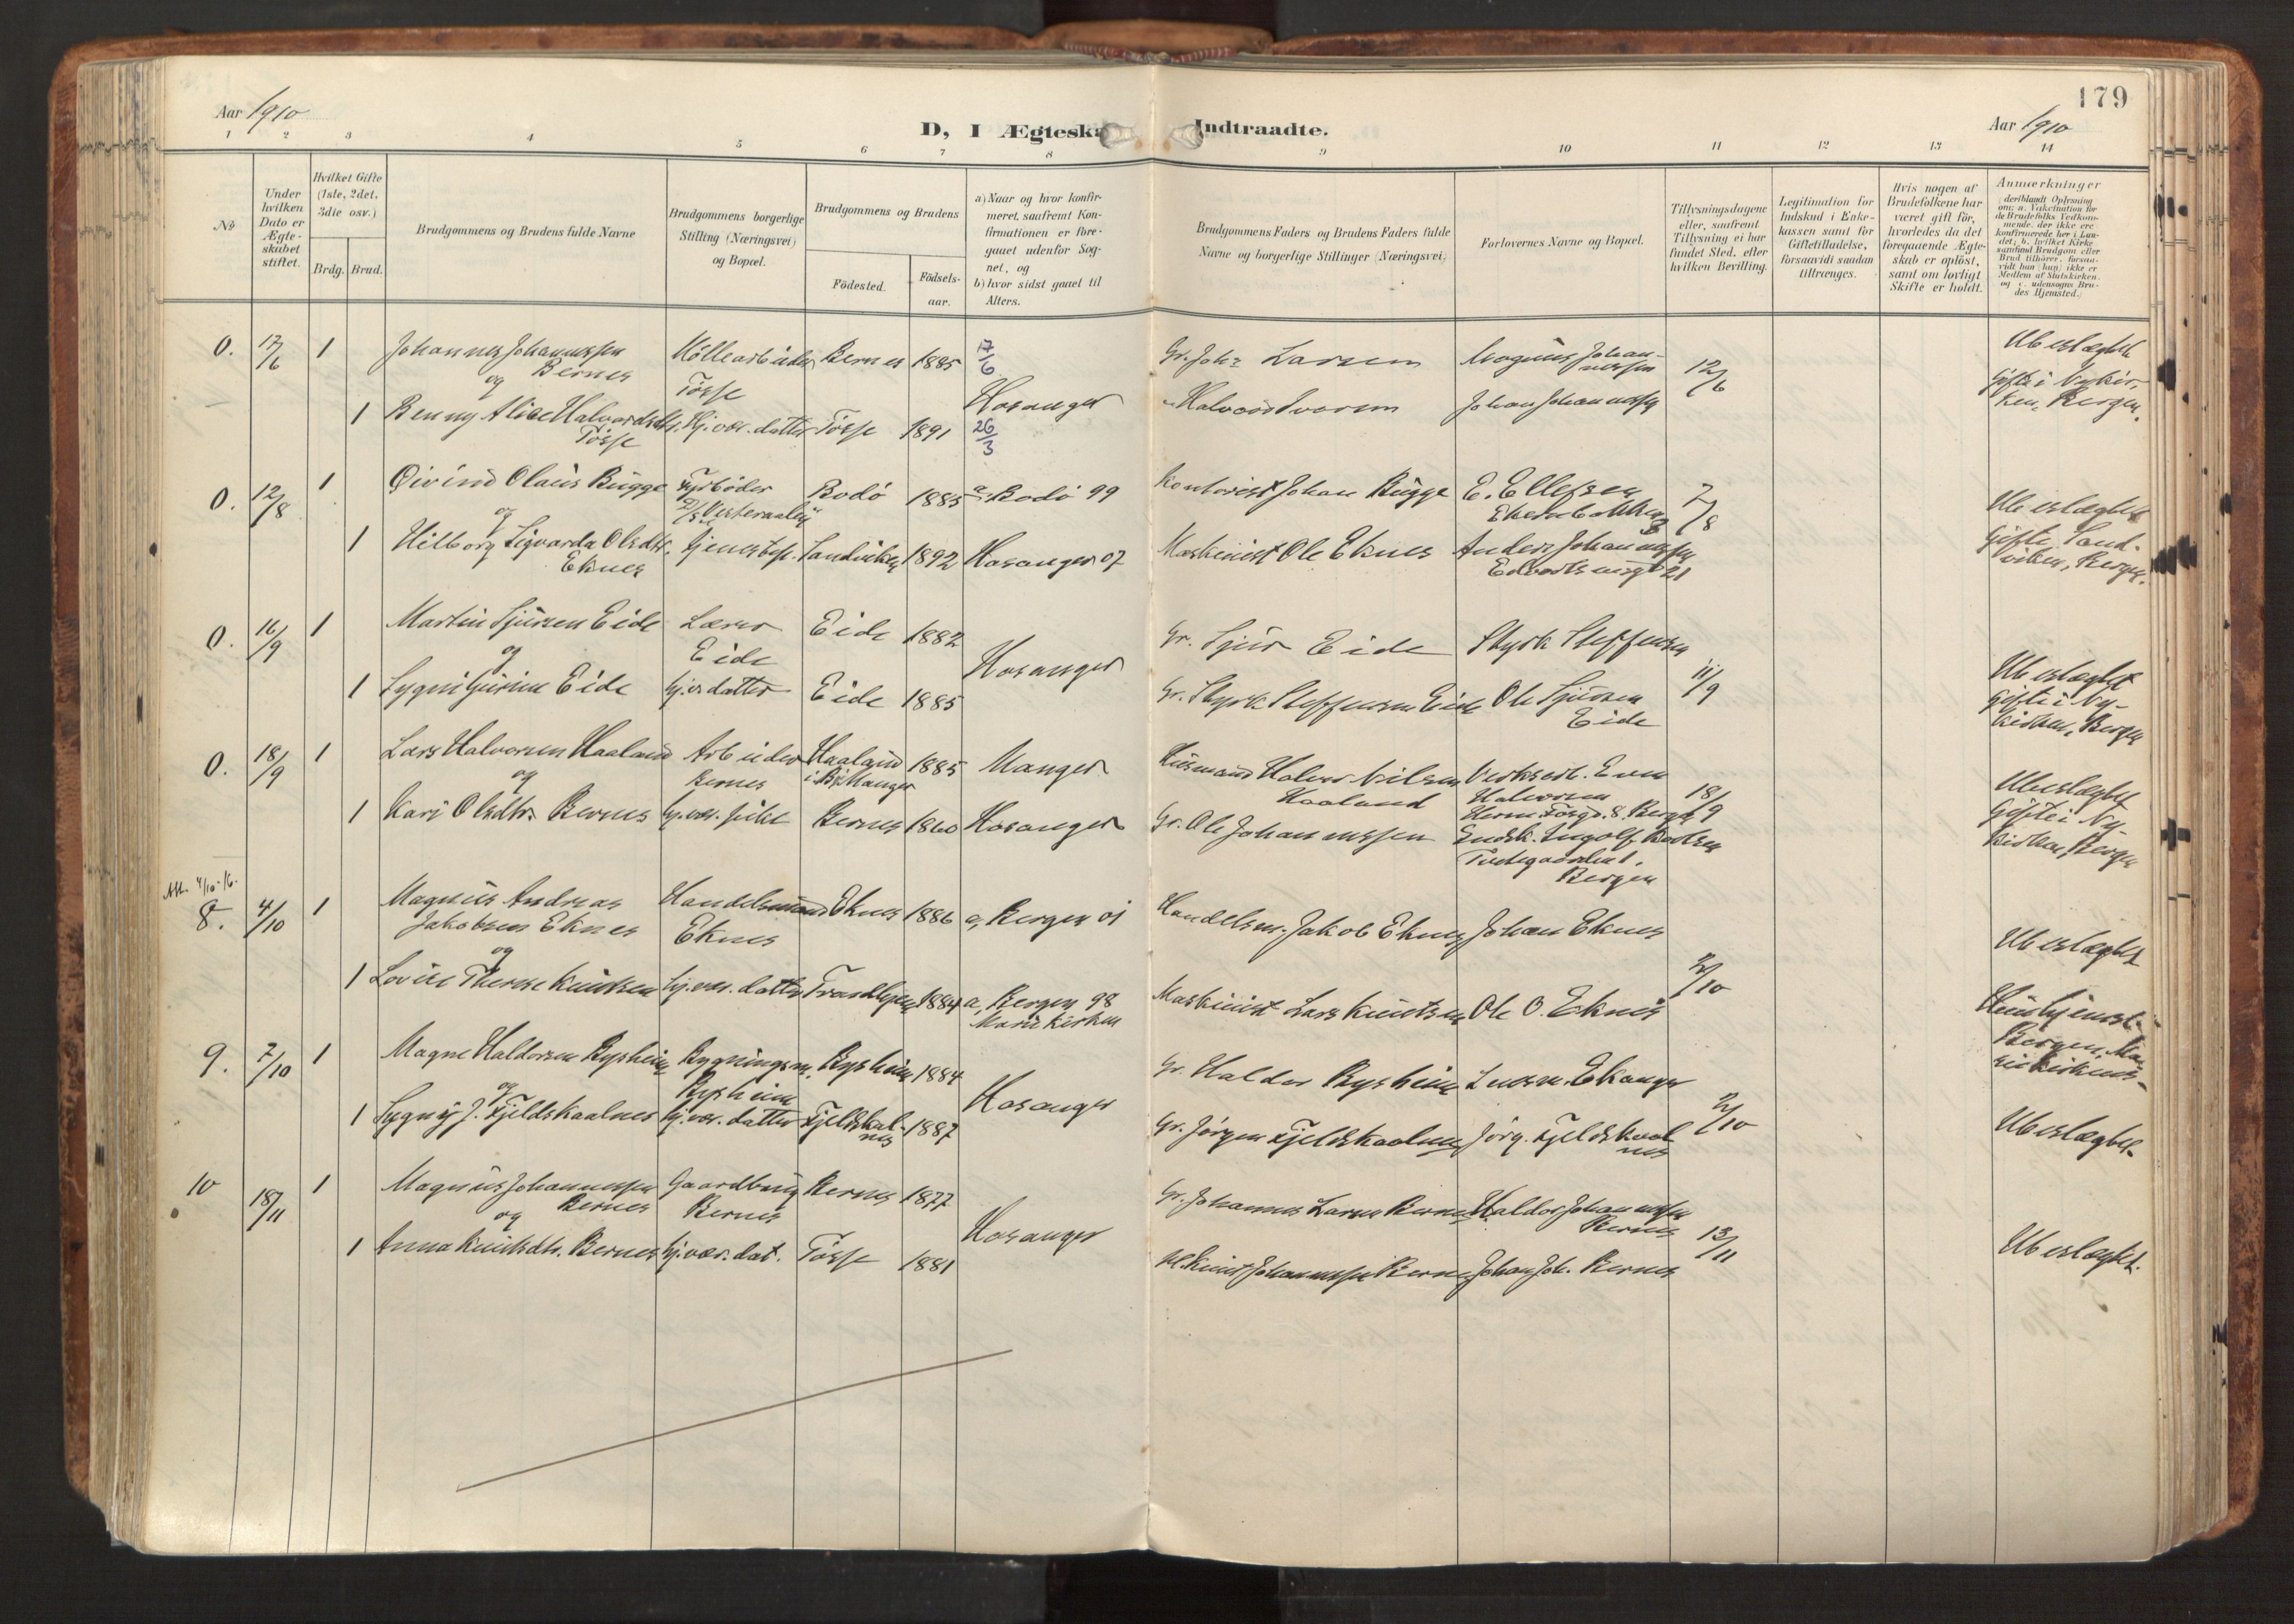 179
Aar 1910
D, I Ægteska Indtraadte.
Aar 1910
1 2 3 4 5 6 7 8 9 10 11 12 13 14
No
Under hvilken Dato er Ægteskabet stiftet.
Hvilket Gifte (1ste, 2det, 3die osv.)
Brdg. Brud.
Brudgommens og Brudens fulde Navne
Brudgommens borgerlige Stilling (Næringsvei) og Bopæl.
Brudgommens og Brudens
Födested.
Födsels-aar.
a) Naar og hvor konfirmeret, saafremt Konfirmationen er foregaaet udenfor Sognet, og
b) hvor sidst gaaet til Alters.
Brudgommens Faders og Brudens Faders fulde Navne og borgerlige Stillinger (Næringsvei)
Forlovernes Navne og Bopæl.
Tillysningsdagene eller, saafremt Tillysning ei har fundet Sted, efter hvilken Bevilling.
Legitimation for Indskud i Enkekassen samt for Giftetilladelse, forsaavidt saadan tiltrænges.
Hvis nogen af Brudefolkene har været gift för, hvorledes da det foregaaende Ægteskab er oplöst, samt om lovligt Skifte er holdt.
Anmerkninger (deriblandt Oplysning om: a. Vakcination for de Brudefolks Vedkommende, der ikke ere konfirmerede her i Landet; b. hvilket Kirkesamfund Brudgom eller Brud tilhörer, forsaavidt han (hun) ikke er Medlem af Statskirken, og c. udensogns Brudes Hjemsted.)
0. 17/6 1 Johannes Johannessen Bernes Møllearbeider Tosse Bernes 1885 17/6 Gr. Joh. Larsen Magnus Johannessen 12/6 Ubeslægtet
og Hosanger Gifte i Nykirken, Bergen.
1 Benny Alice Halvordsdtr. Tosse Hj. vær. datter Tosse 1891 26/3 Halvor Iversen Johan Johannessen
0. 12/8 1 Øivind Olaus Bugge Fyrbøder D/S Vesteraalen Bodö 1883 a, Bodö 99 Kontorist Johan Bugge E. Ellefsen 7/8 Ubeslægtet
og Gifte Sandviken, Bergen.
1 Hilborg Sigvarda Olsdtr. Eknes Sandviken 1892 Hosanger 07 Maskinist Ole Eknes Anders Johannessen 21
0. 16/9 1 Martin Sjursen Eide Lærer Eide Eide 1882 Hosanger Gr. Sjur Eide Styrk Steffensen 11/9 Ubeslægtet
og Gifte i Nykirken, Bergen
1 Eide datter Eide 1885 Gr. Styrk Steffensen Eide Ole Sjursen Eide
0. 18/9 1 Lars Halvorsen Haaland Arbeider Bernes Haaland i Manger 1885 Manger Husmand Halvor Nilsen Haaland Halvorsen 18/9 Ubeslægtet
og Gifte i Nykirken, Bergen
1 Kari Olsdtr. Bernes Hj. vær. pike Bernes 1860 Hosanger Gr. Ole Johannessen Bergen
8. 4/10 1 Magnus Andreas Jakobsen Eknes Handelsmand Eknes Eknes 1886 a, Bergen 01 Handelsm. Jakob Eknes Johan Eknes 2/10 Ubeslægtet
og
1 Lovise Therese Knudsen Hj. vær. datter Trondhjem 1884 a, Bergen 98 Mariekirken Maskinist Lars Knutsen Ole O. Eknes
9. 7/10 1 Magne Haldorsen Rysheim Bygningsm. Rysheim Rysheim 1884 Hosanger Gr. Haldor Rysheim 2/10 Ubeslægtet
og
1 J. Fjeldskaalnes Hj. vær. datter Fjeldskalnes 1887 Gr. Jörgen Fjeldskaalnes Jörg. Fjeldskaalnes
10 18/11 1 Magnus Johannessen Bernes Gaardbrug Bernes Bernes 1877 Hosanger Gr. Johannes Larsen Bernes Haldor Johannessen Bernes 13/11 Ubeslægtet.
og
1 Anna Knutsdtr. Bernes Hj. vær. dat. Tosse 1881 Knut Johannessen Bernes Johan Joh. Bernes